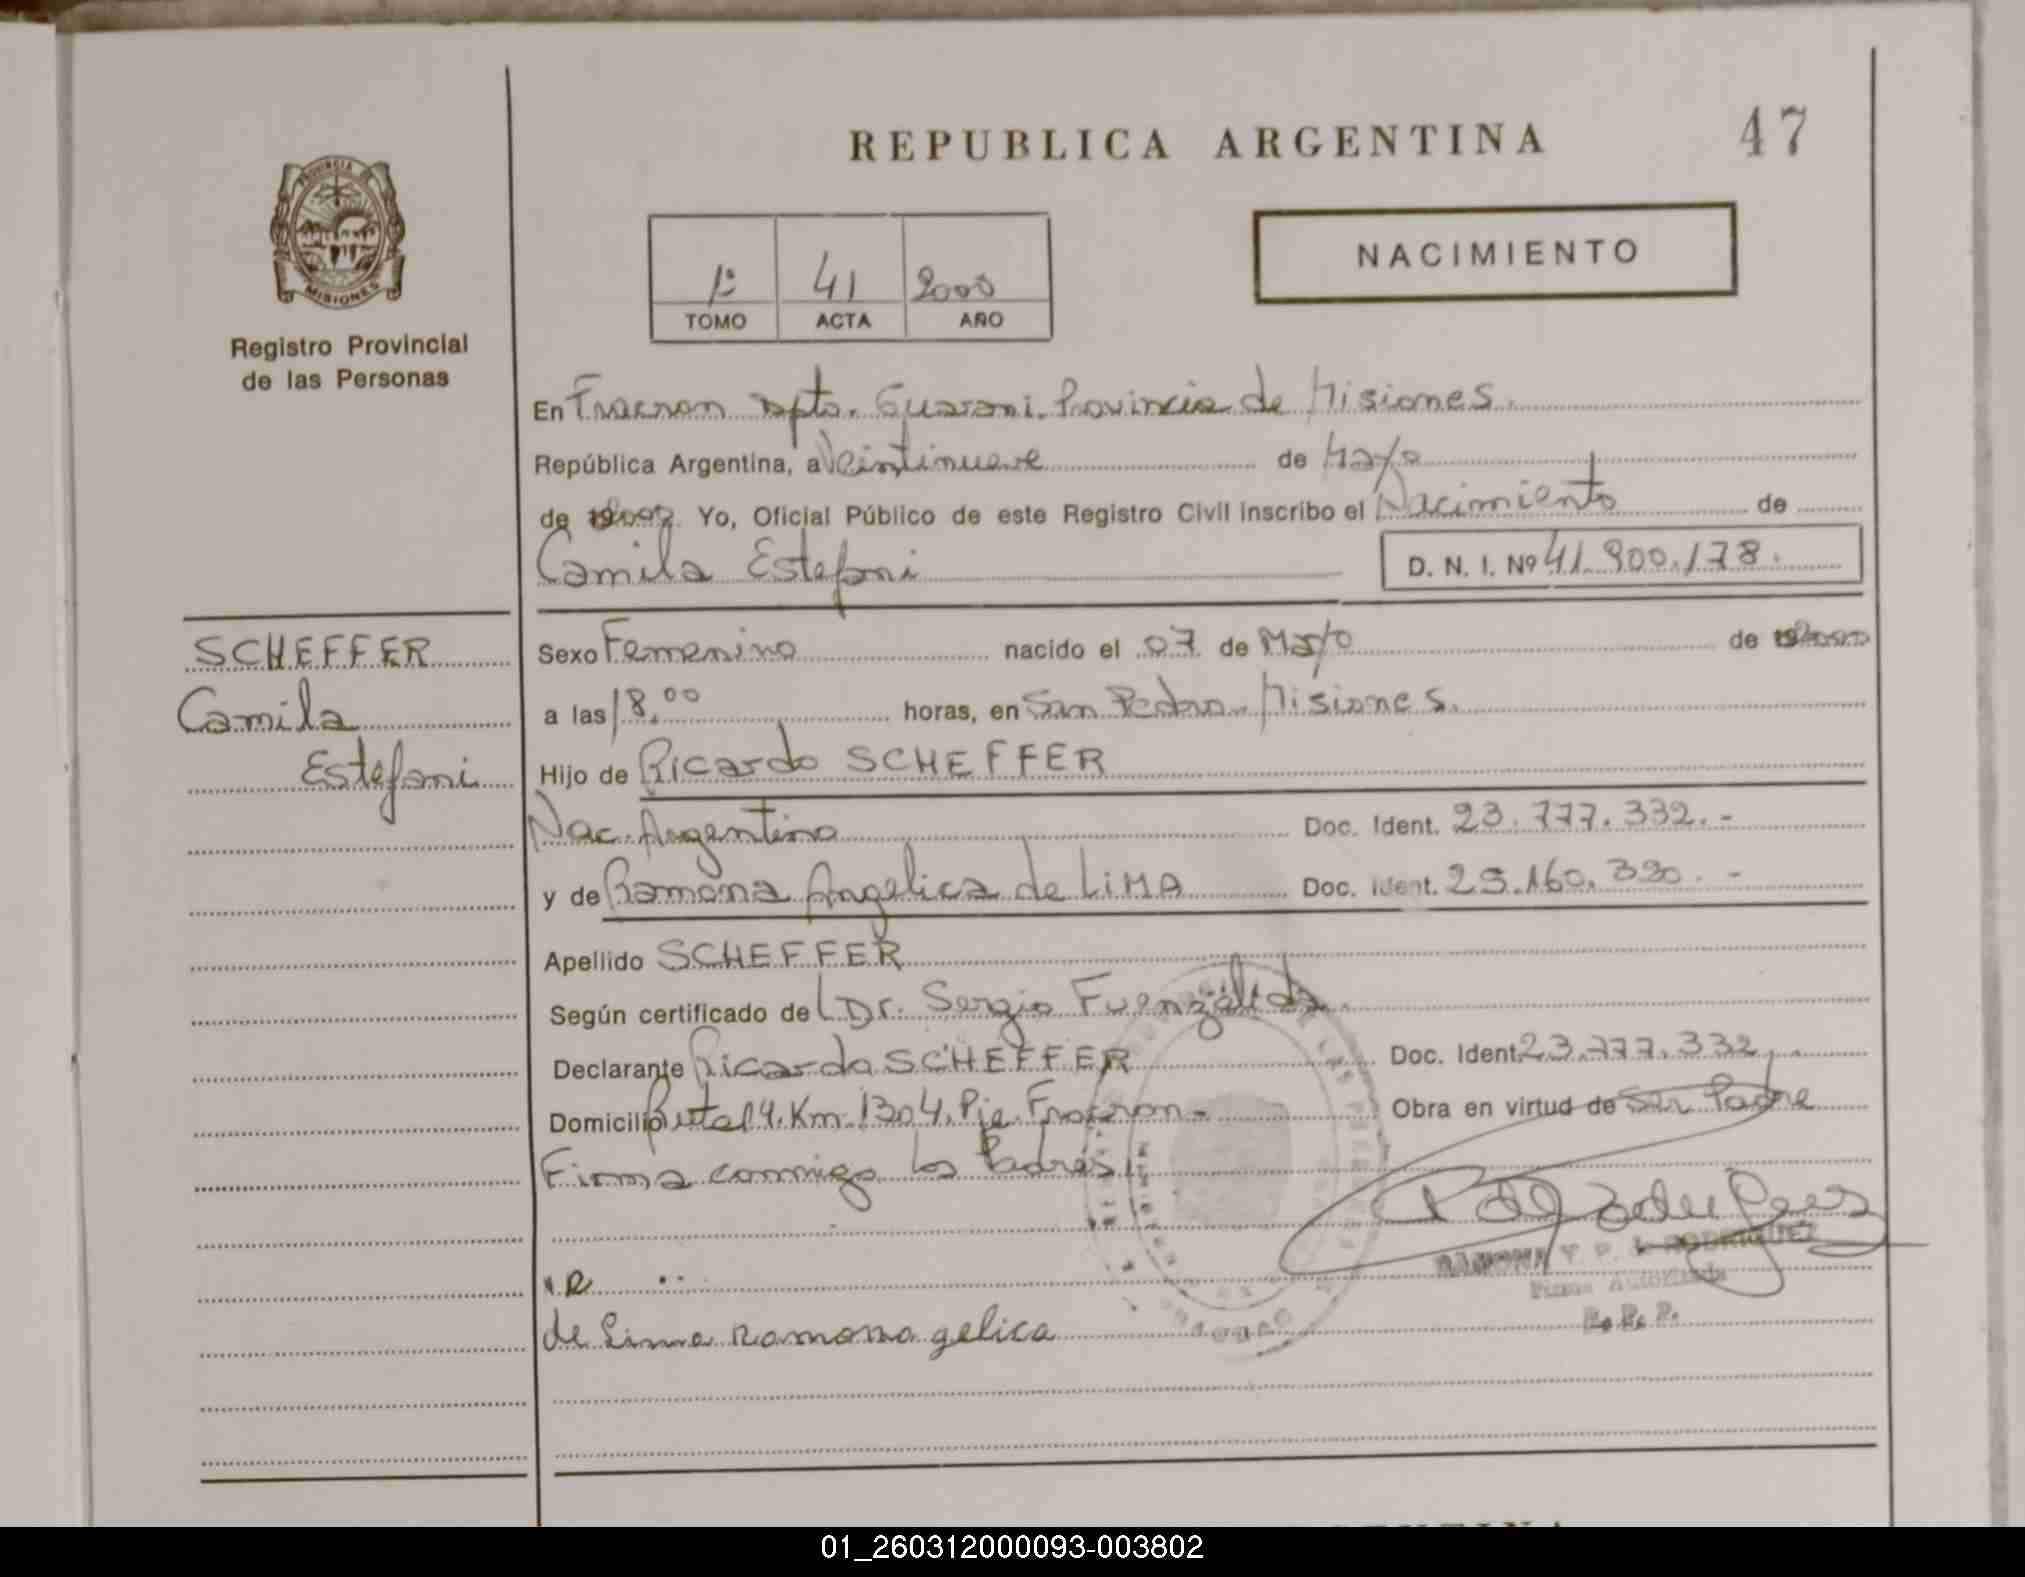 REPUBLICA ARGENTINA
47
PROVINCIA DE
MISIONES
Registro Provincial
de las Personas
1º 41 2000
TOMO ACTA AÑO
NACIMIENTO
En Fracran Dpto. Guarani. Provincia de Misiones.
República Argentina, a Veintinueve de Mayo
de Yo, Oficial Público de este Registro Civil inscribo el Nacimiento de
Camila Estefani
D. N. I. Nº 41.900.178.
SCHEFFER
Camila
Estefani
Sexo Femenino nacido el 07 de Mayo de
a las 18.00 horas, en San Pedro. Misiones.
Hijo de Ricardo SCHEFFER
Nac. Argentino Doc. Ident. 23.777.332.-
y de Ramona Angelica de LiMA Doc. Ident.
Apellido SCHEFFER
Según certificado de Dr. Sergio Fuenzalida.
Declarante Ricardo SCHEFFER Doc. Ident. 23.777.332
Domicilio Ruta 14. Km. 1304. Pje. Fracran- Obra en virtud de Ser Padre
Firma conmigo los Padres
RODRIGUEZ
de Lima ramona gelica
01_260312000093-003802